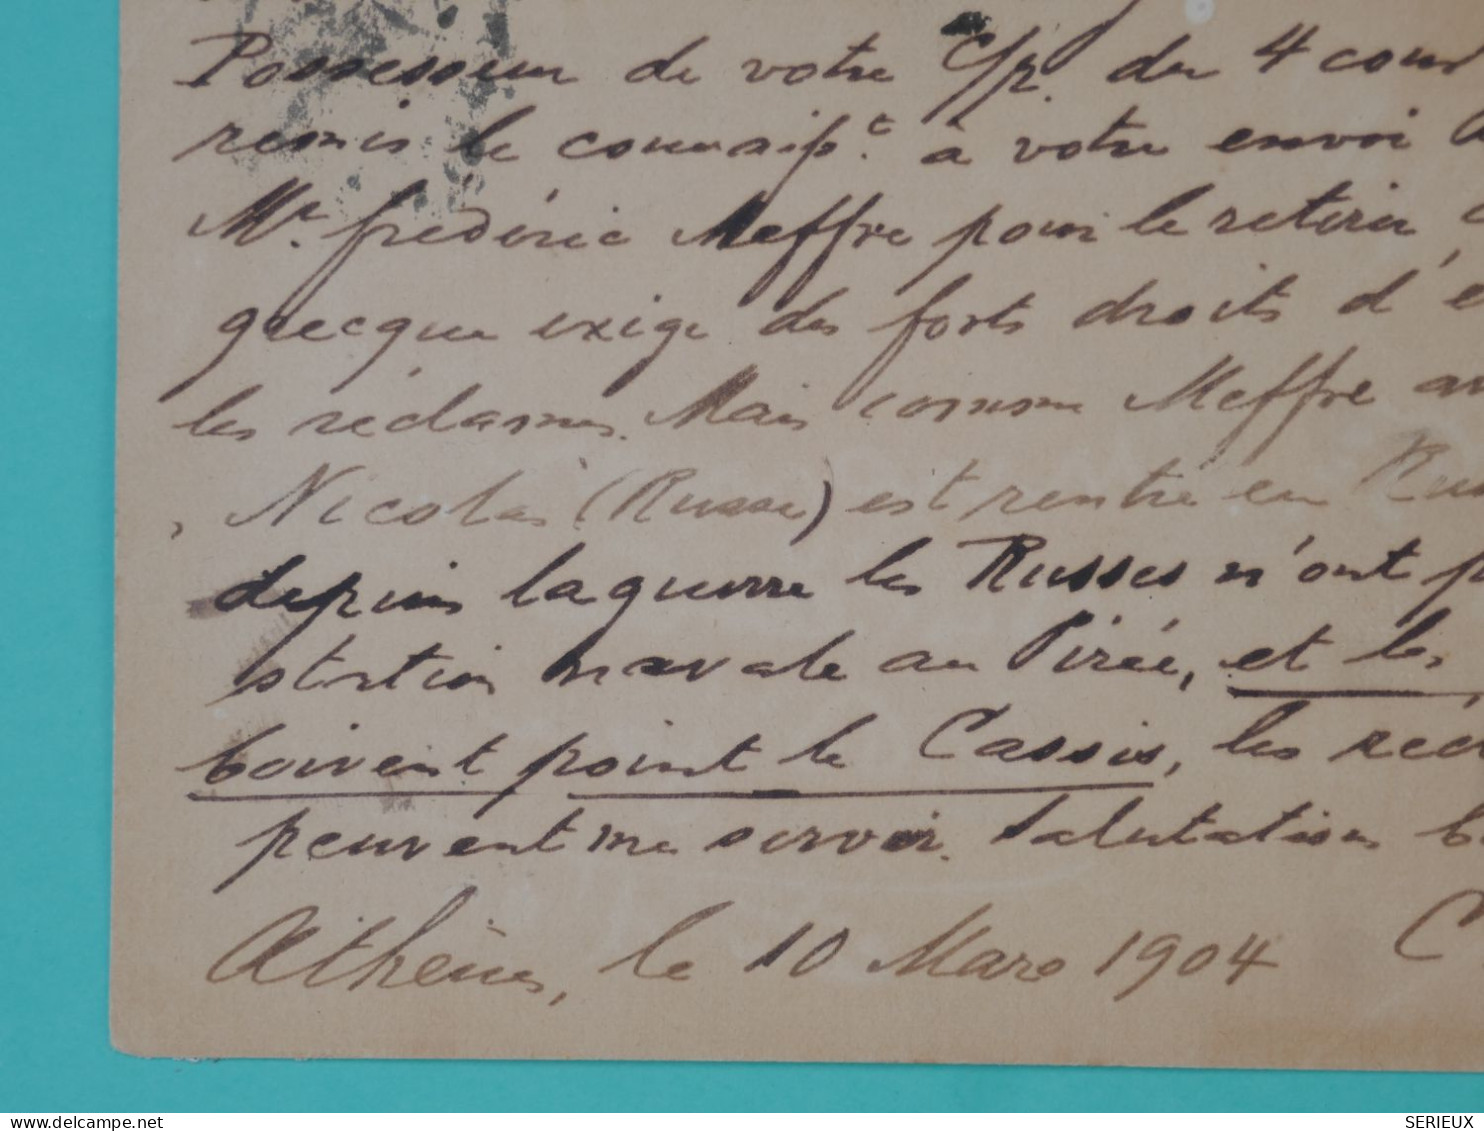 Possesseur de votre C/p. du 4 cour
remis le connaisst. à votre envoi
Mr. frédéric Meffre pour le retirer
grecque exige des forts droits d'e
les réclames. Mais comme Meffre av
Nicolas (Russe) est rentré en Rus
depuis la guerre les Russes n'ont p
station navale au Pirée, et les
boivent point le Cassis, les réc
peuvent me servir. Salutations
Athènes, le 10 Mars 1904 C
delcampe.net
SERIEUX